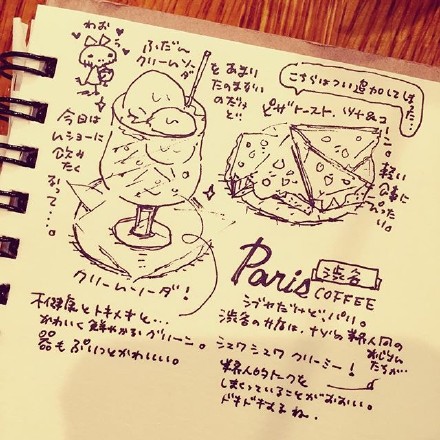 わお
ふだん
クリームソーダ
を あまり
たのまない
のだけ
ど…
今日は
ムショーに
飲みたく
なって…。
こちらはつい追加してしまった…
ピザトースト、ツナ&コーン。
軽い
食事に
ぴったり。
クリームソーダ!
Paris
渋谷
COFFEE
不健康とトキメキと…
かわいく鮮やかなグリーン。
器もぷりっとかわいい。
シブヤだけど、パリ。
渋谷のお店は、
おじさん
たちが…
シュワシュワ クリーミー!
業界人的トークを
しまくっていることがおおい。
ドキドキするね。